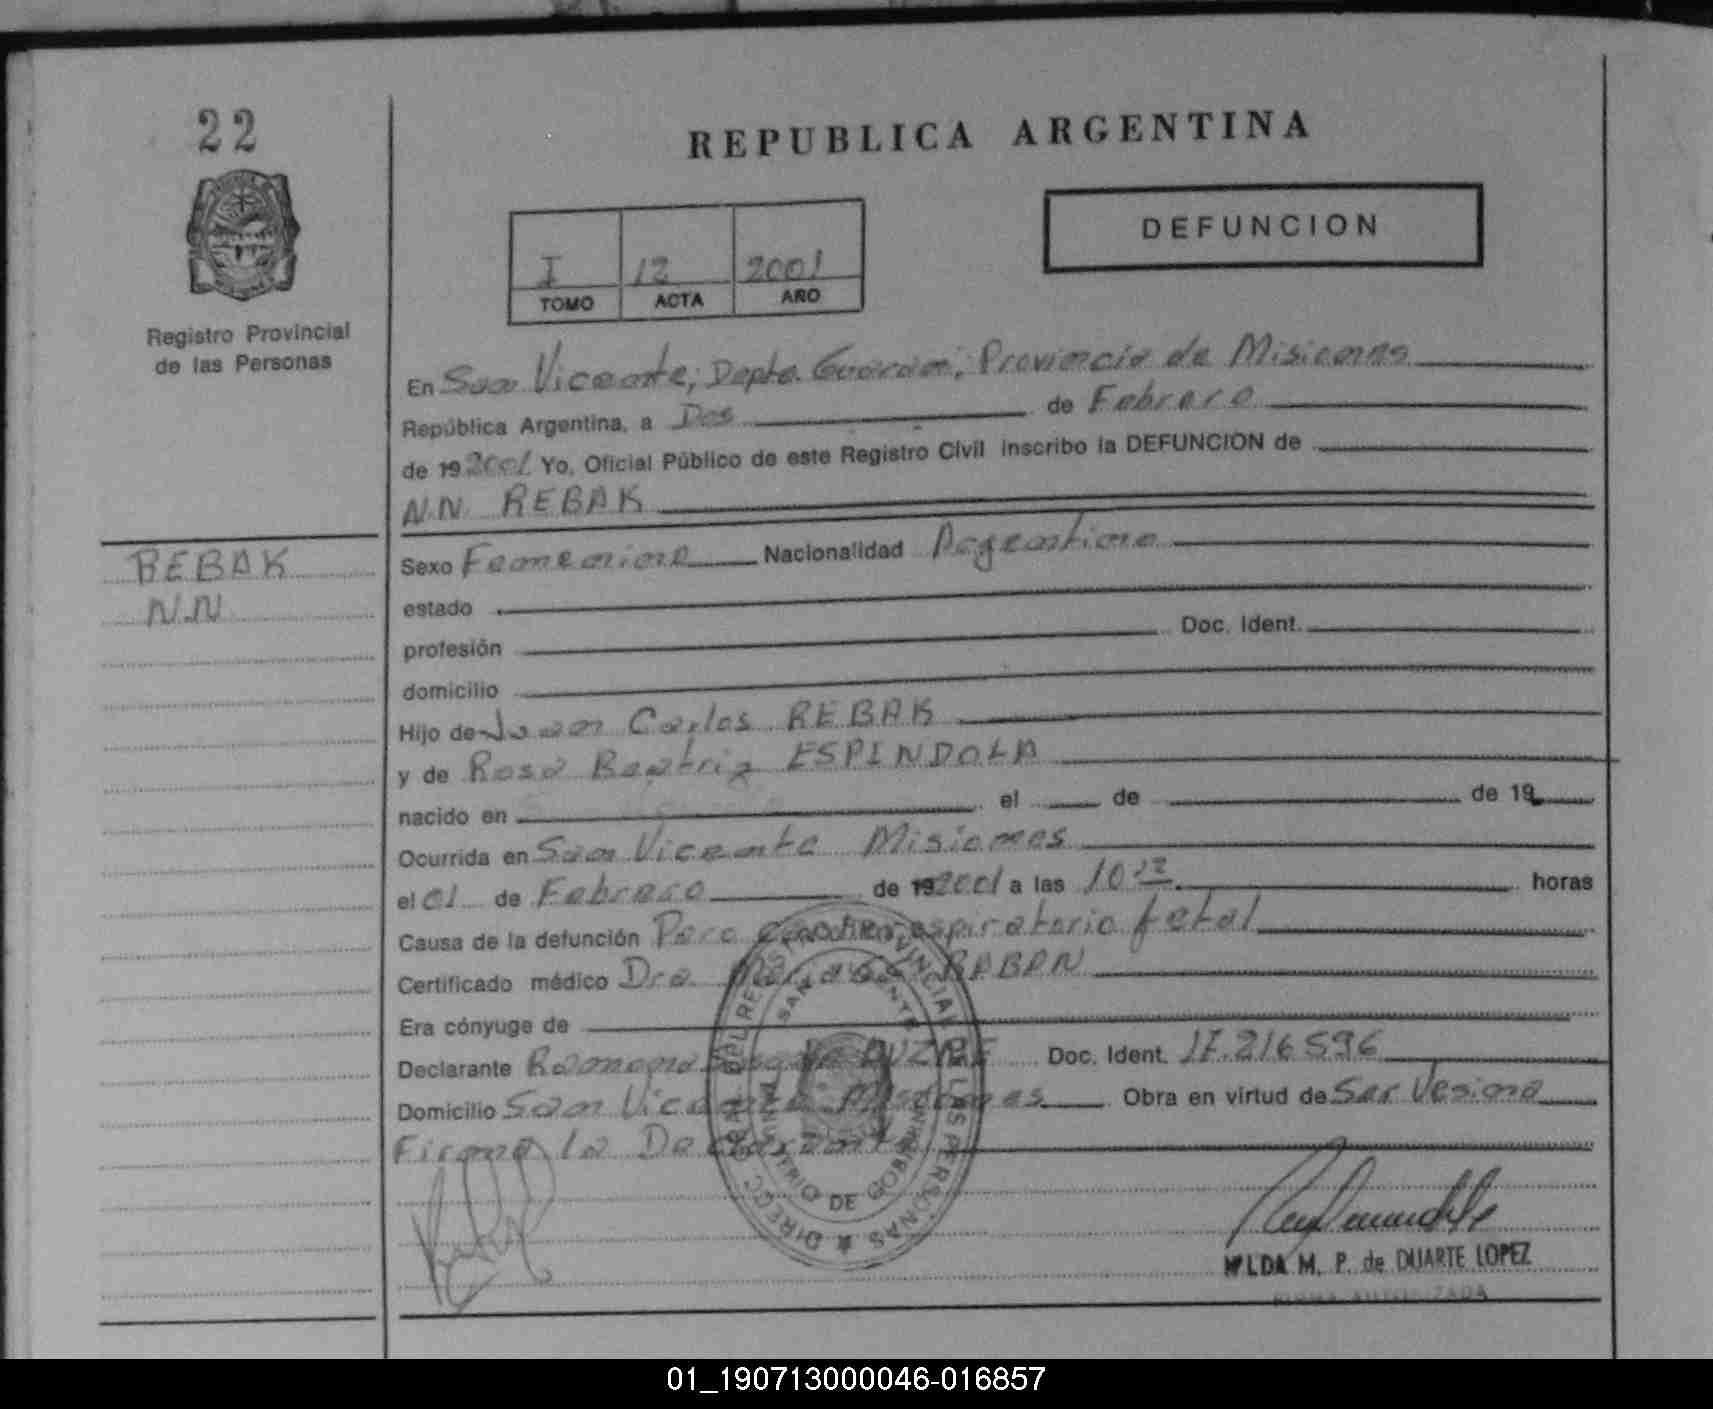 22
REPUBLICA ARGENTINA
DEFUNCION
I 12 2001
TOMO ACTA AÑO
Registro Provincial
de las Personas
En San Vicente, Depto. Guaraní, Provincia de Misiones
República Argentina, a Dos de Febrero
de 19 2001 Yo, Oficial Público de este Registro Civil inscribo la DEFUNCION de
N.N. REBAK
REBAK
N.N
Sexo Femenino Nacionalidad Argentina
estado
profesión Doc. Ident.
domicilio
Hijo de Juan Carlos REBAK
y de Rosa Beatriz ESPINDOLA
nacido en el de de 19
Ocurrida en San Vicente Misiones
el 01 de Febrero de 19 2001 a las 10 horas
Causa de la defunción Paro cardiorespiratorio fetal
Certificado médico Dra.
Era cónyuge de
Declarante Ramona Doc. Ident. 17.216596
Domicilio San Vicente Misiones Obra en virtud de Ser Vesina
Firma la Declarante
DE LAS PERSONAS
M. P. de DUARTE LOPEZ
FIRMA AUTORIZADA
01_190713000046-016857